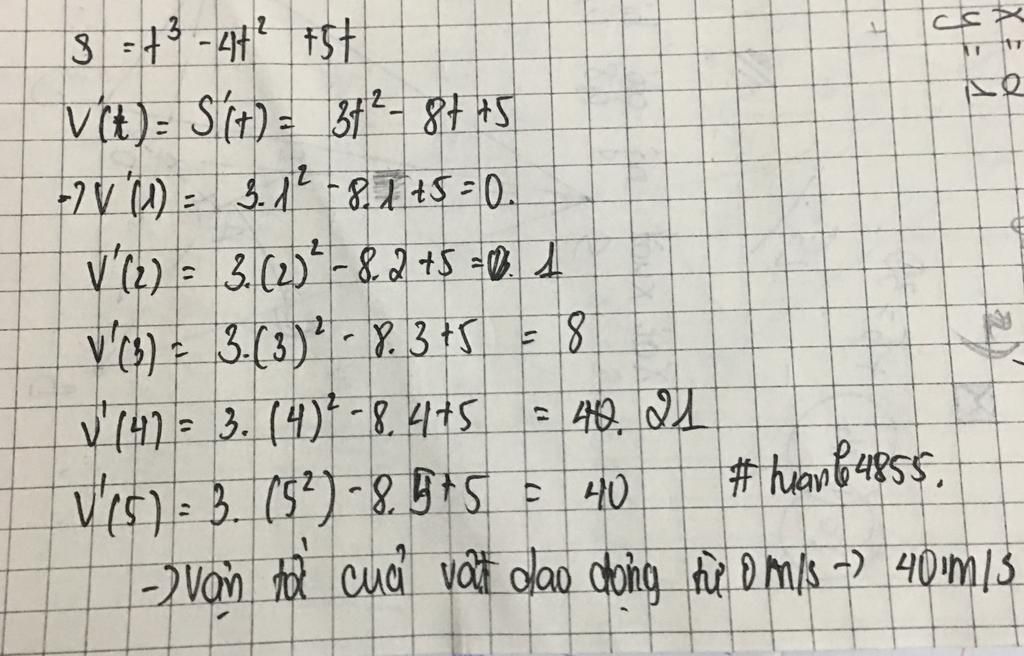 S = t³ - 4t² + 5t
V'(t) = S'(t) = 3t² - 8t + 5
-> V'(1) = 3.1² - 8.1 + 5 = 0.
V'(2) = 3.(2)² - 8.2 + 5 = 1
V'(3) = 3.(3)² - 8.3 + 5 = 8
V'(4) = 3.(4)² - 8.4 + 5 = 40. 21
V'(5) = 3.(5²) - 8.5 + 5 = 40
-> vận tốc của vật dao động từ 0 m/s -> 40 m/s